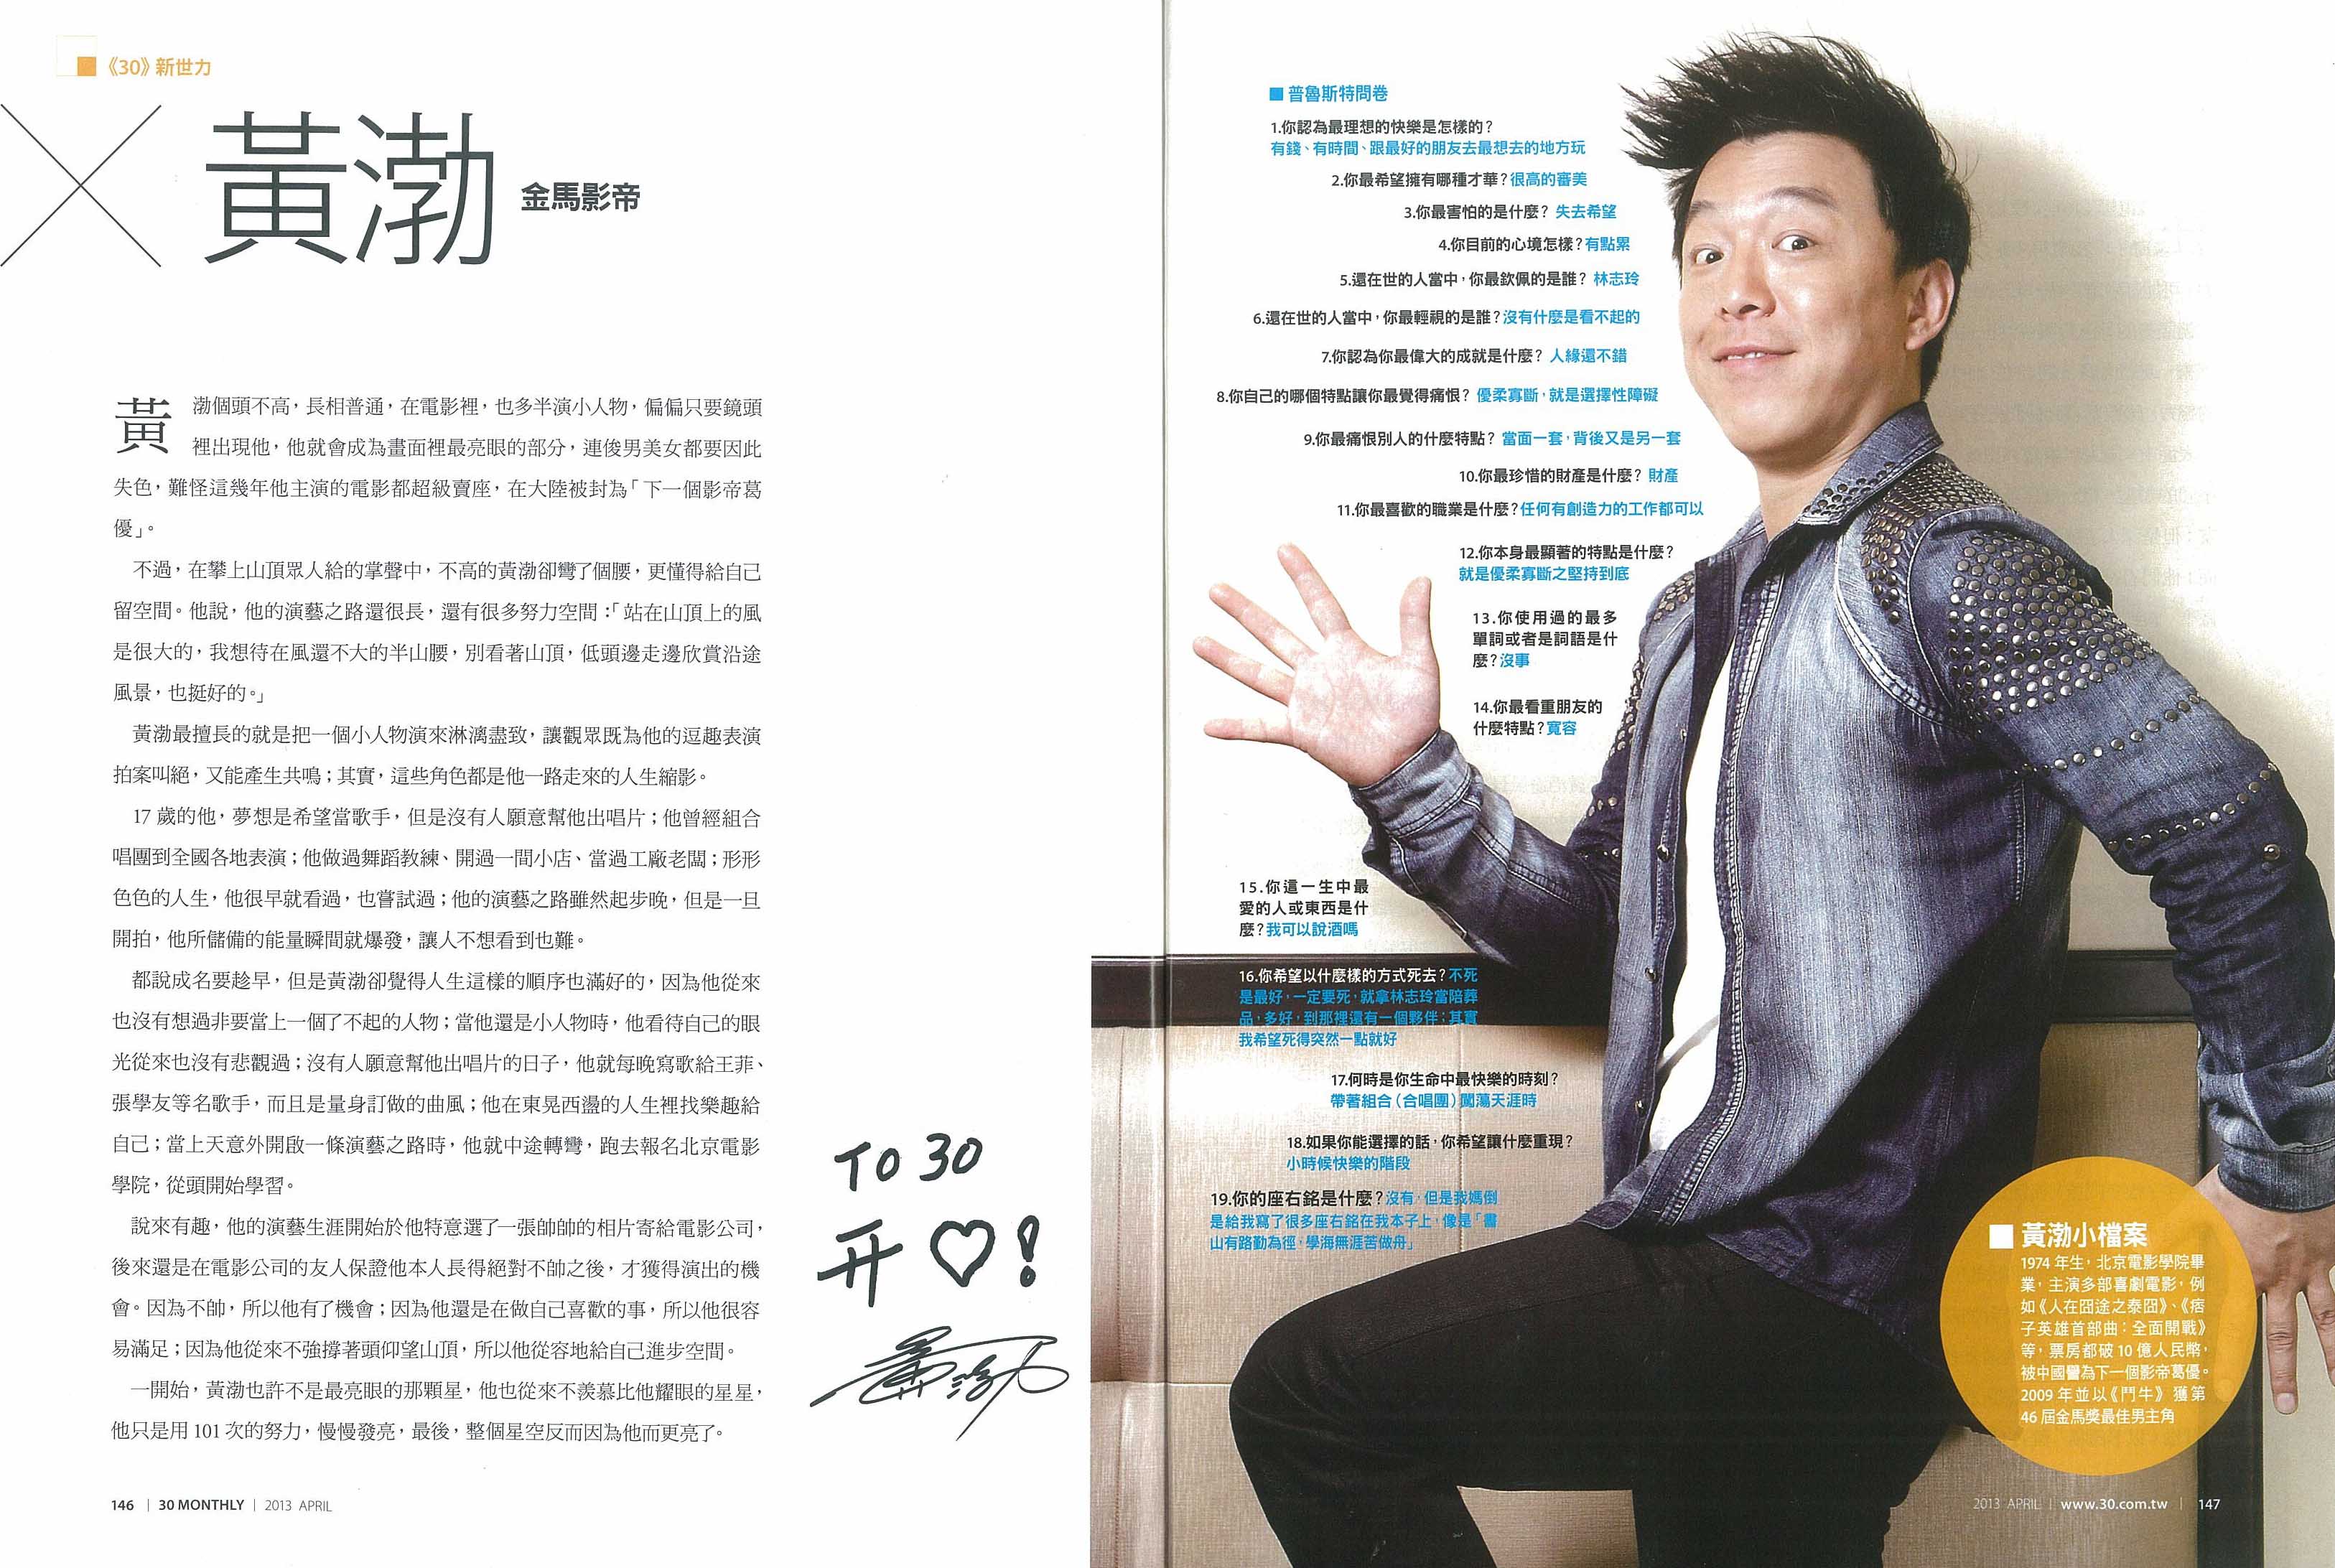 《30》新世力
黃渤 金馬影帝
黃渤個頭不高，長相普通，在電影裡，也多半演小人物，偏偏只要鏡頭
裡出現他，他就會成為畫面裡最亮眼的部分，連俊男美女都要因此
失色，難怪這幾年他主演的電影都超級賣座，在大陸被封為「下一個影帝葛
優」。
不過，在攀上山頂眾人給的掌聲中，不高的黃渤卻彎了個腰，更懂得給自己
留空間。他說，他的演藝之路還很長，還有很多努力空間：「站在山頂上的風
是很大的，我想待在風還不大的半山腰，別看著山頂，低頭邊走邊欣賞沿途
風景，也挺好的。」
黃渤最擅長的就是把一個小人物演來淋漓盡致，讓觀眾既為他的逗趣表演
拍案叫絕，又能產生共鳴；其實，這些角色都是他一路走來的人生縮影。
17 歲的他，夢想是希望當歌手，但是沒有人願意幫他出唱片；他曾經組合
唱團到全國各地表演；他做過舞蹈教練、開過一間小店、當過工廠老闆；形形
色色的人生，他很早就看過，也嘗試過；他的演藝之路雖然起步晚，但是一旦
開拍，他所儲備的能量瞬間就爆發，讓人不想看到也難。
都說成名要趁早，但是黃渤卻覺得人生這樣的順序也滿好的，因為他從來
也沒有想過非要當上一個了不起的人物；當他還是小人物時，他看待自己的眼
光從來也沒有悲觀過；沒有人願意幫他出唱片的日子，他就每晚寫歌給王菲、
張學友等名歌手，而且是量身訂做的曲風；他在東晃西盪的人生裡找樂趣給
自己；當上天意外開啟一條演藝之路時，他就中途轉彎，跑去報名北京電影
學院，從頭開始學習。
說來有趣，他的演藝生涯開始於他特意選了一張帥帥的相片寄給電影公司，
後來還是在電影公司的友人保證他本人長得絕對不帥之後，才獲得演出的機
會。因為不帥，所以他有了機會；因為他還是在做自己喜歡的事，所以他很容
易滿足；因為他從來不強撐著頭仰望山頂，所以他從容地給自己進步空間。
一開始，黃渤也許不是最亮眼的那顆星，他也從來不羨慕比他耀眼的星星，
他只是用 101 次的努力，慢慢發亮，最後，整個星空反而因為他而更亮了。
TO 30
开♡!
黃渤
146 | 30 MONTHLY | 2013 APRIL
普魯斯特問卷
1.你認為最理想的快樂是怎樣的？
有錢、有時間、跟最好的朋友去最想去的地方玩
2.你最希望擁有哪種才華？很高的審美
3.你最害怕的是什麼？ 失去希望
4.你目前的心境怎樣？有點累
5.還在世的人當中，你最欽佩的是誰？ 林志玲
6.還在世的人當中，你最輕視的是誰？沒有什麼是看不起的
7.你認為你最偉大的成就是什麼？ 人緣還不錯
8.你自己的哪個特點讓你最覺得痛恨？ 優柔寡斷，就是選擇性障礙
9.你最痛恨別人的什麼特點？ 當面一套，背後又是另一套
10.你最珍惜的財產是什麼？ 財產
11.你最喜歡的職業是什麼？任何有創造力的工作都可以
12.你本身最顯著的特點是什麼？
就是優柔寡斷之堅持到底
13.你使用過的最多
單詞或者是詞語是什
麼？沒事
14.你最看重朋友的
什麼特點？寬容
15.你這一生中最
愛的人或東西是什
麼？我可以說酒嗎
16.你希望以什麼樣的方式死去？不死
是最好，一定要死，就拿林志玲當陪葬
品，多好，到那裡還有一個夥伴；其實
我希望死得突然一點就好
17.何時是你生命中最快樂的時刻？
帶著組合（合唱團）闖蕩天涯時
18.如果你能選擇的話，你希望讓什麼重現？
小時候快樂的階段
19.你的座右銘是什麼？沒有，但是我媽倒
是給我寫了很多座右銘在我本子上，像是「書
山有路勤為徑，學海無涯苦做舟」
黃渤小檔案
1974 年生，北京電影學院畢
業，主演多部喜劇電影，例
如《人在囧途之泰囧》、《痞
子英雄首部曲：全面開戰》
等，票房都破 10 億人民幣，
被中國譽為下一個影帝葛優。
2009 年並以《鬥牛》獲第
46 屆金馬獎最佳男主角
2013 APRIL | www.30.com.tw | 147